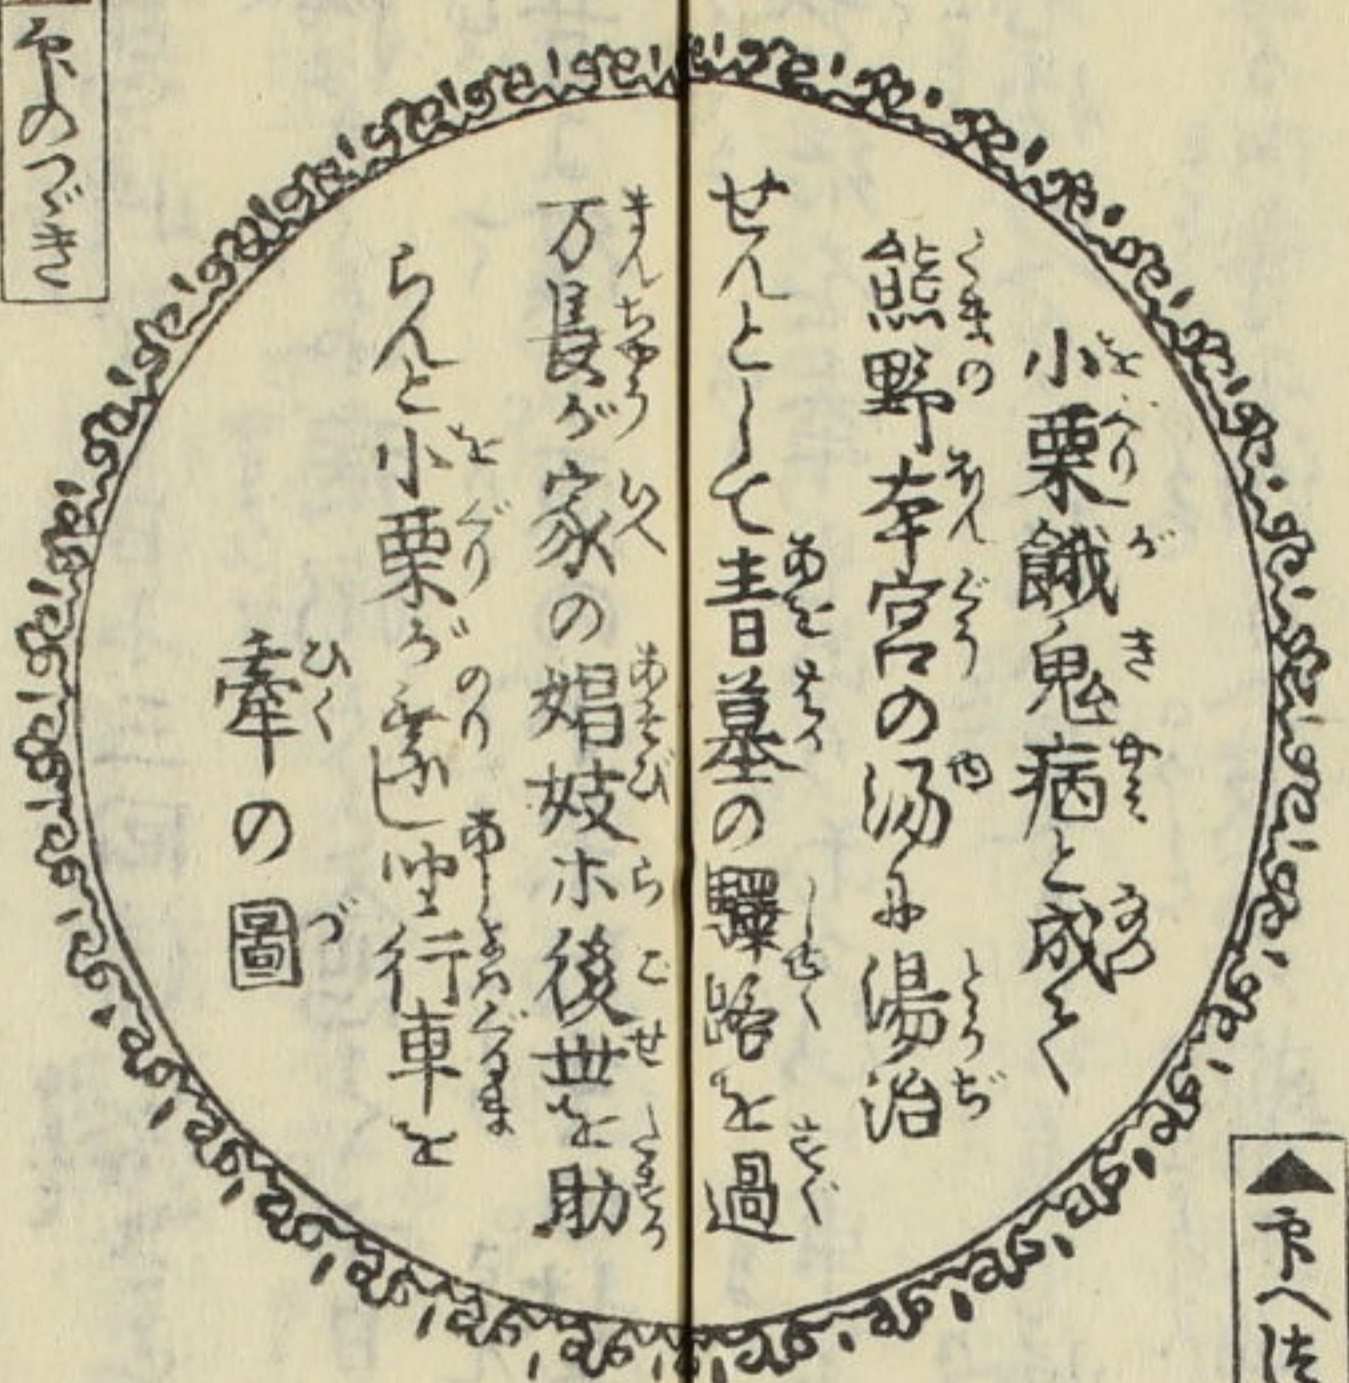 ▲印へつ
小栗餓鬼病と成て
熊野本宮の湯に湯治
せんとして青墓の驛路を過
万長が家の娼妓ホ後世を助
らんと小栗が乗し坐行車を
牽の圖
印のつゞき